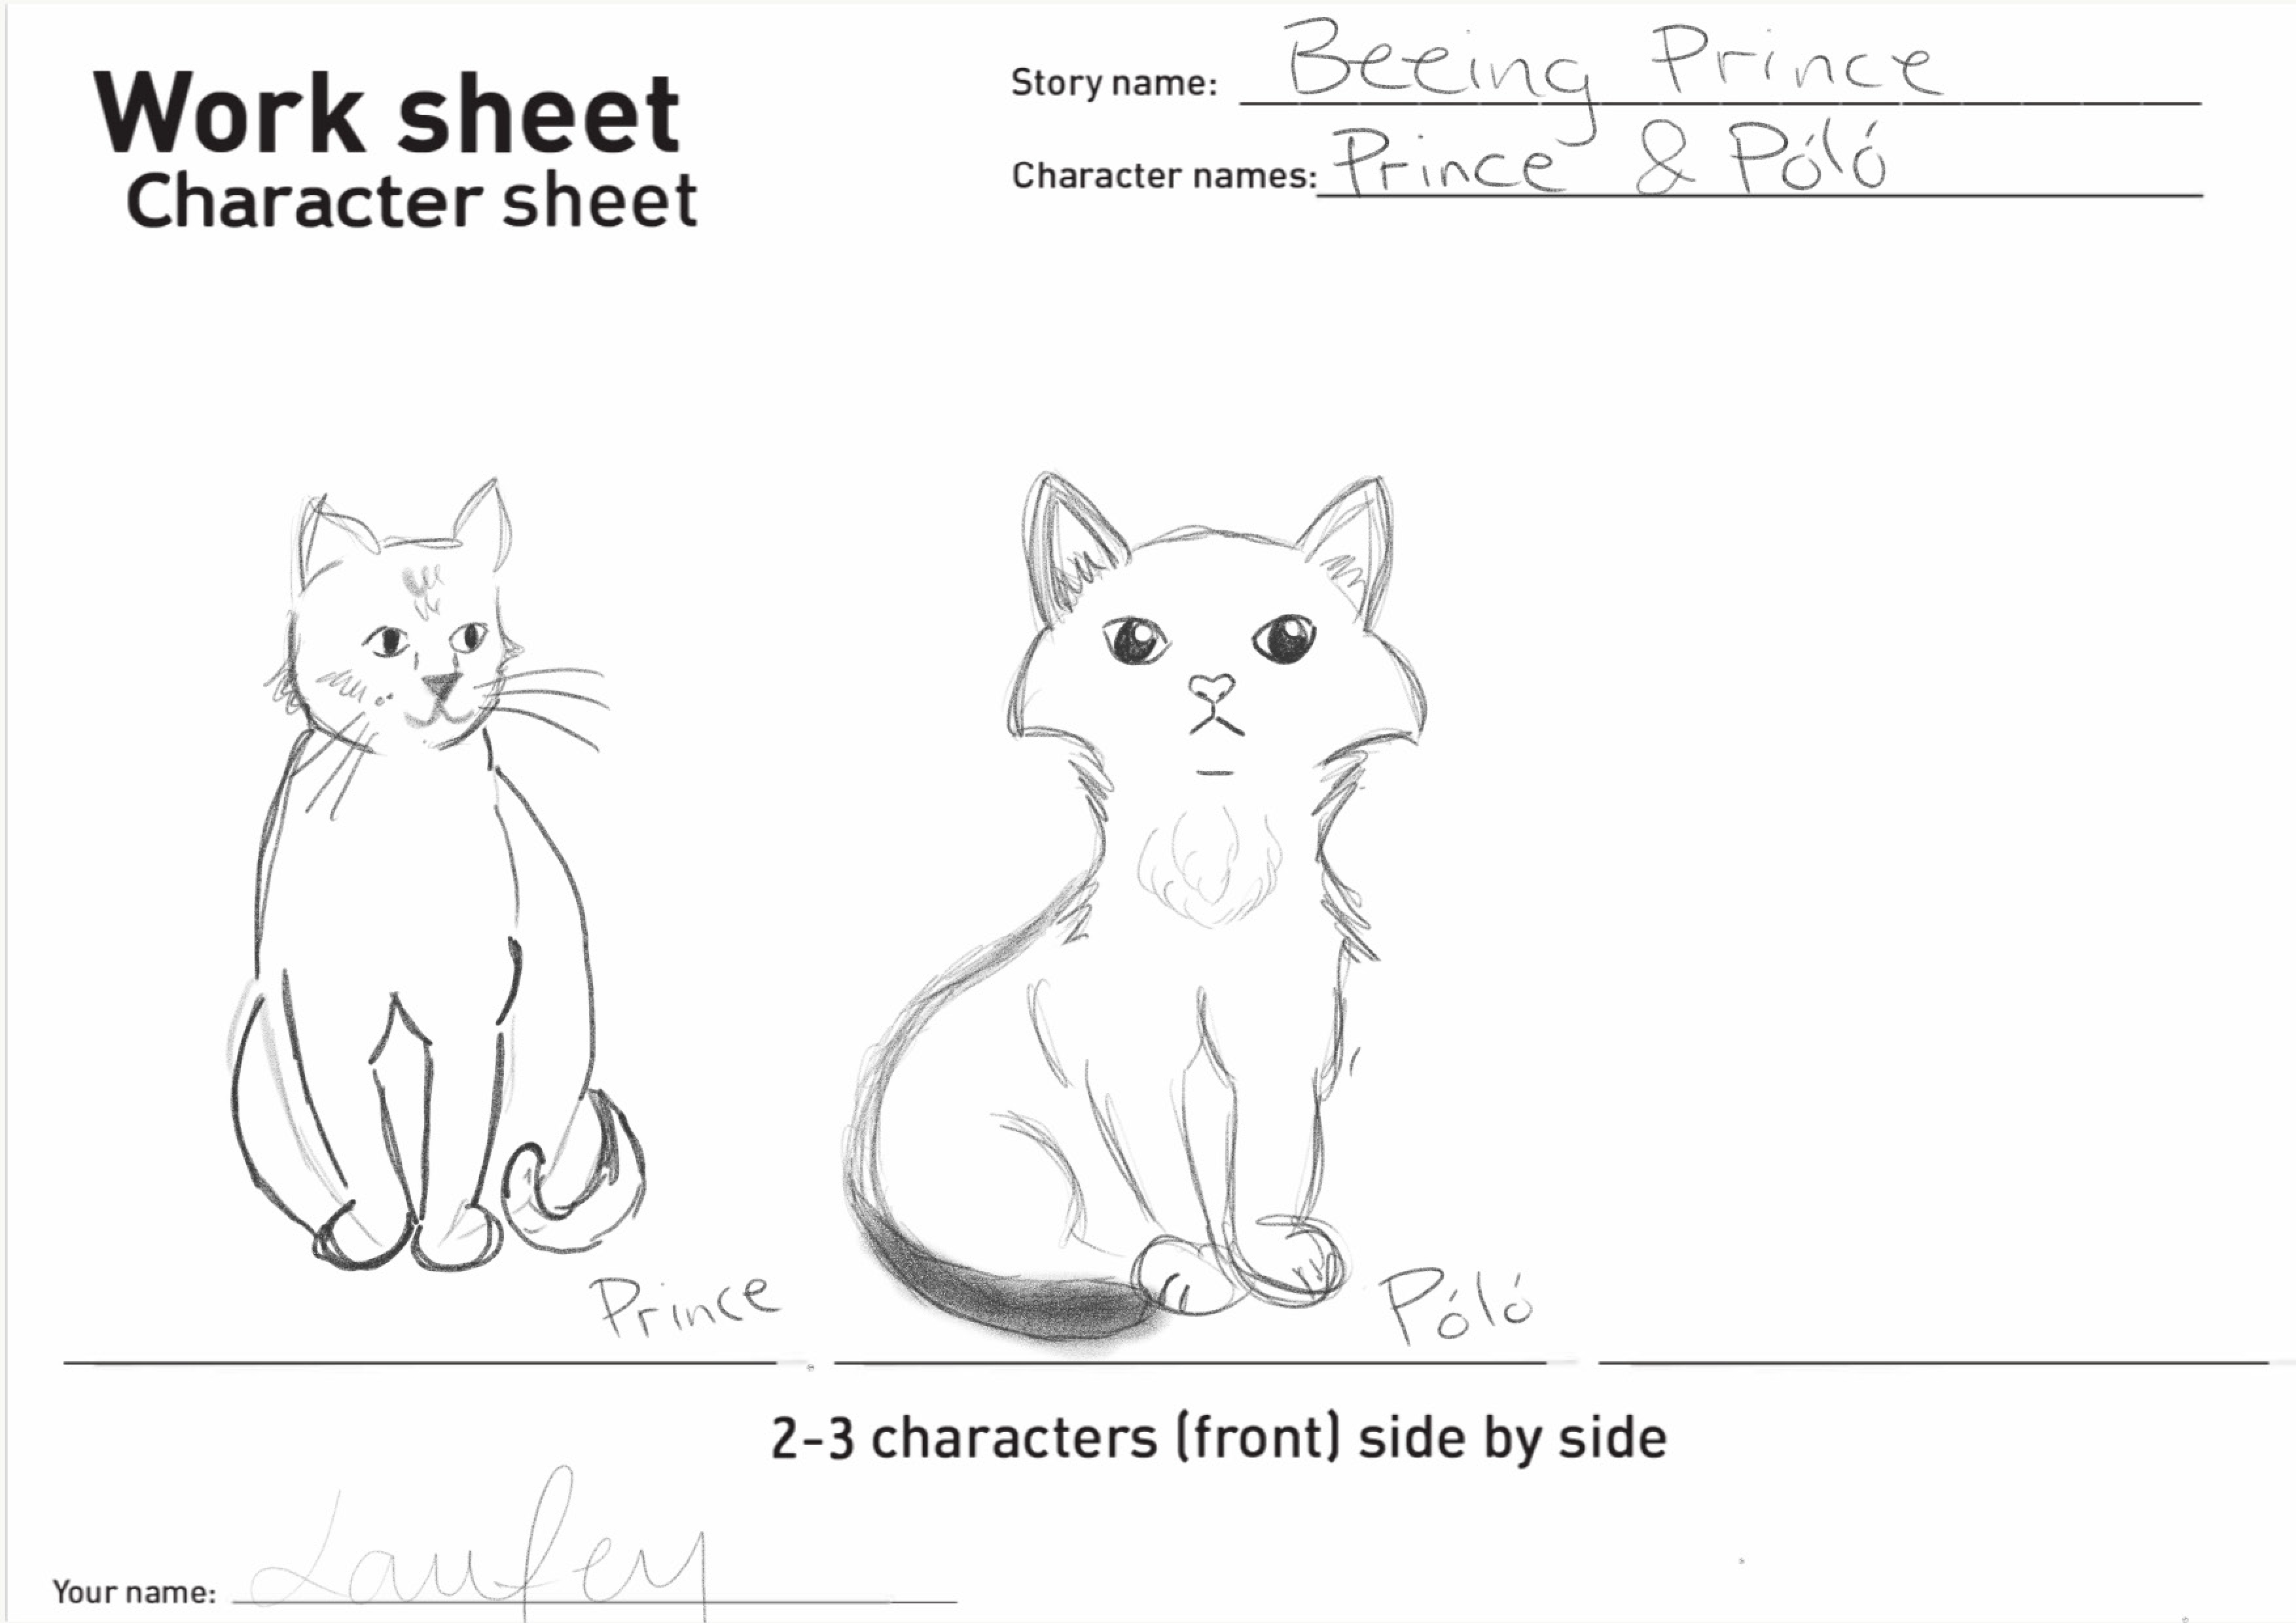 Work sheet
Character sheet
Story name: Beeing Prince
Character names: Prince & Póló
Prince
Póló
2-3 characters (front) side by side
Your name: Laufey